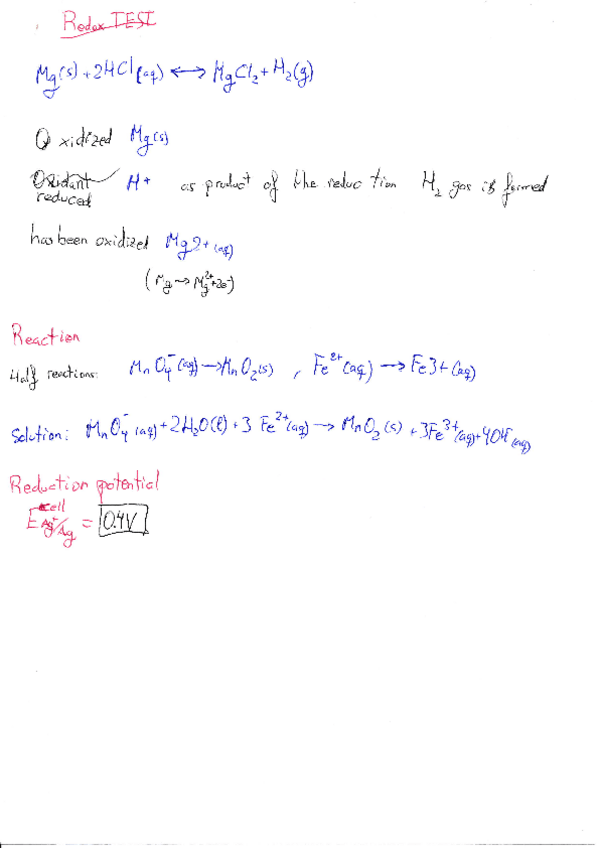 Redox TEST
Mg(s) + 2HCl(aq) ⟷ MgCl₂ + H₂(g)
Oxidized Mg(s)
Oxidant H+ as product of the reduction H₂ gas is formed
reduced
has been oxidized Mg2+(aq)
(Mg → Mg²⁺+2e⁻)
Reaction
Half reactions: MnO₄⁻(aq) → MnO₂(s) , Fe²⁺(aq) → Fe3+(aq)
Solution: MnO₄⁻(aq) + 2H₂O(l) + 3 Fe²⁺(aq) → MnO₂(s) + 3Fe³⁺(aq) + 4OH⁻(aq)
Reduction potential
E cell Ag⁺/Ag = 0.4V